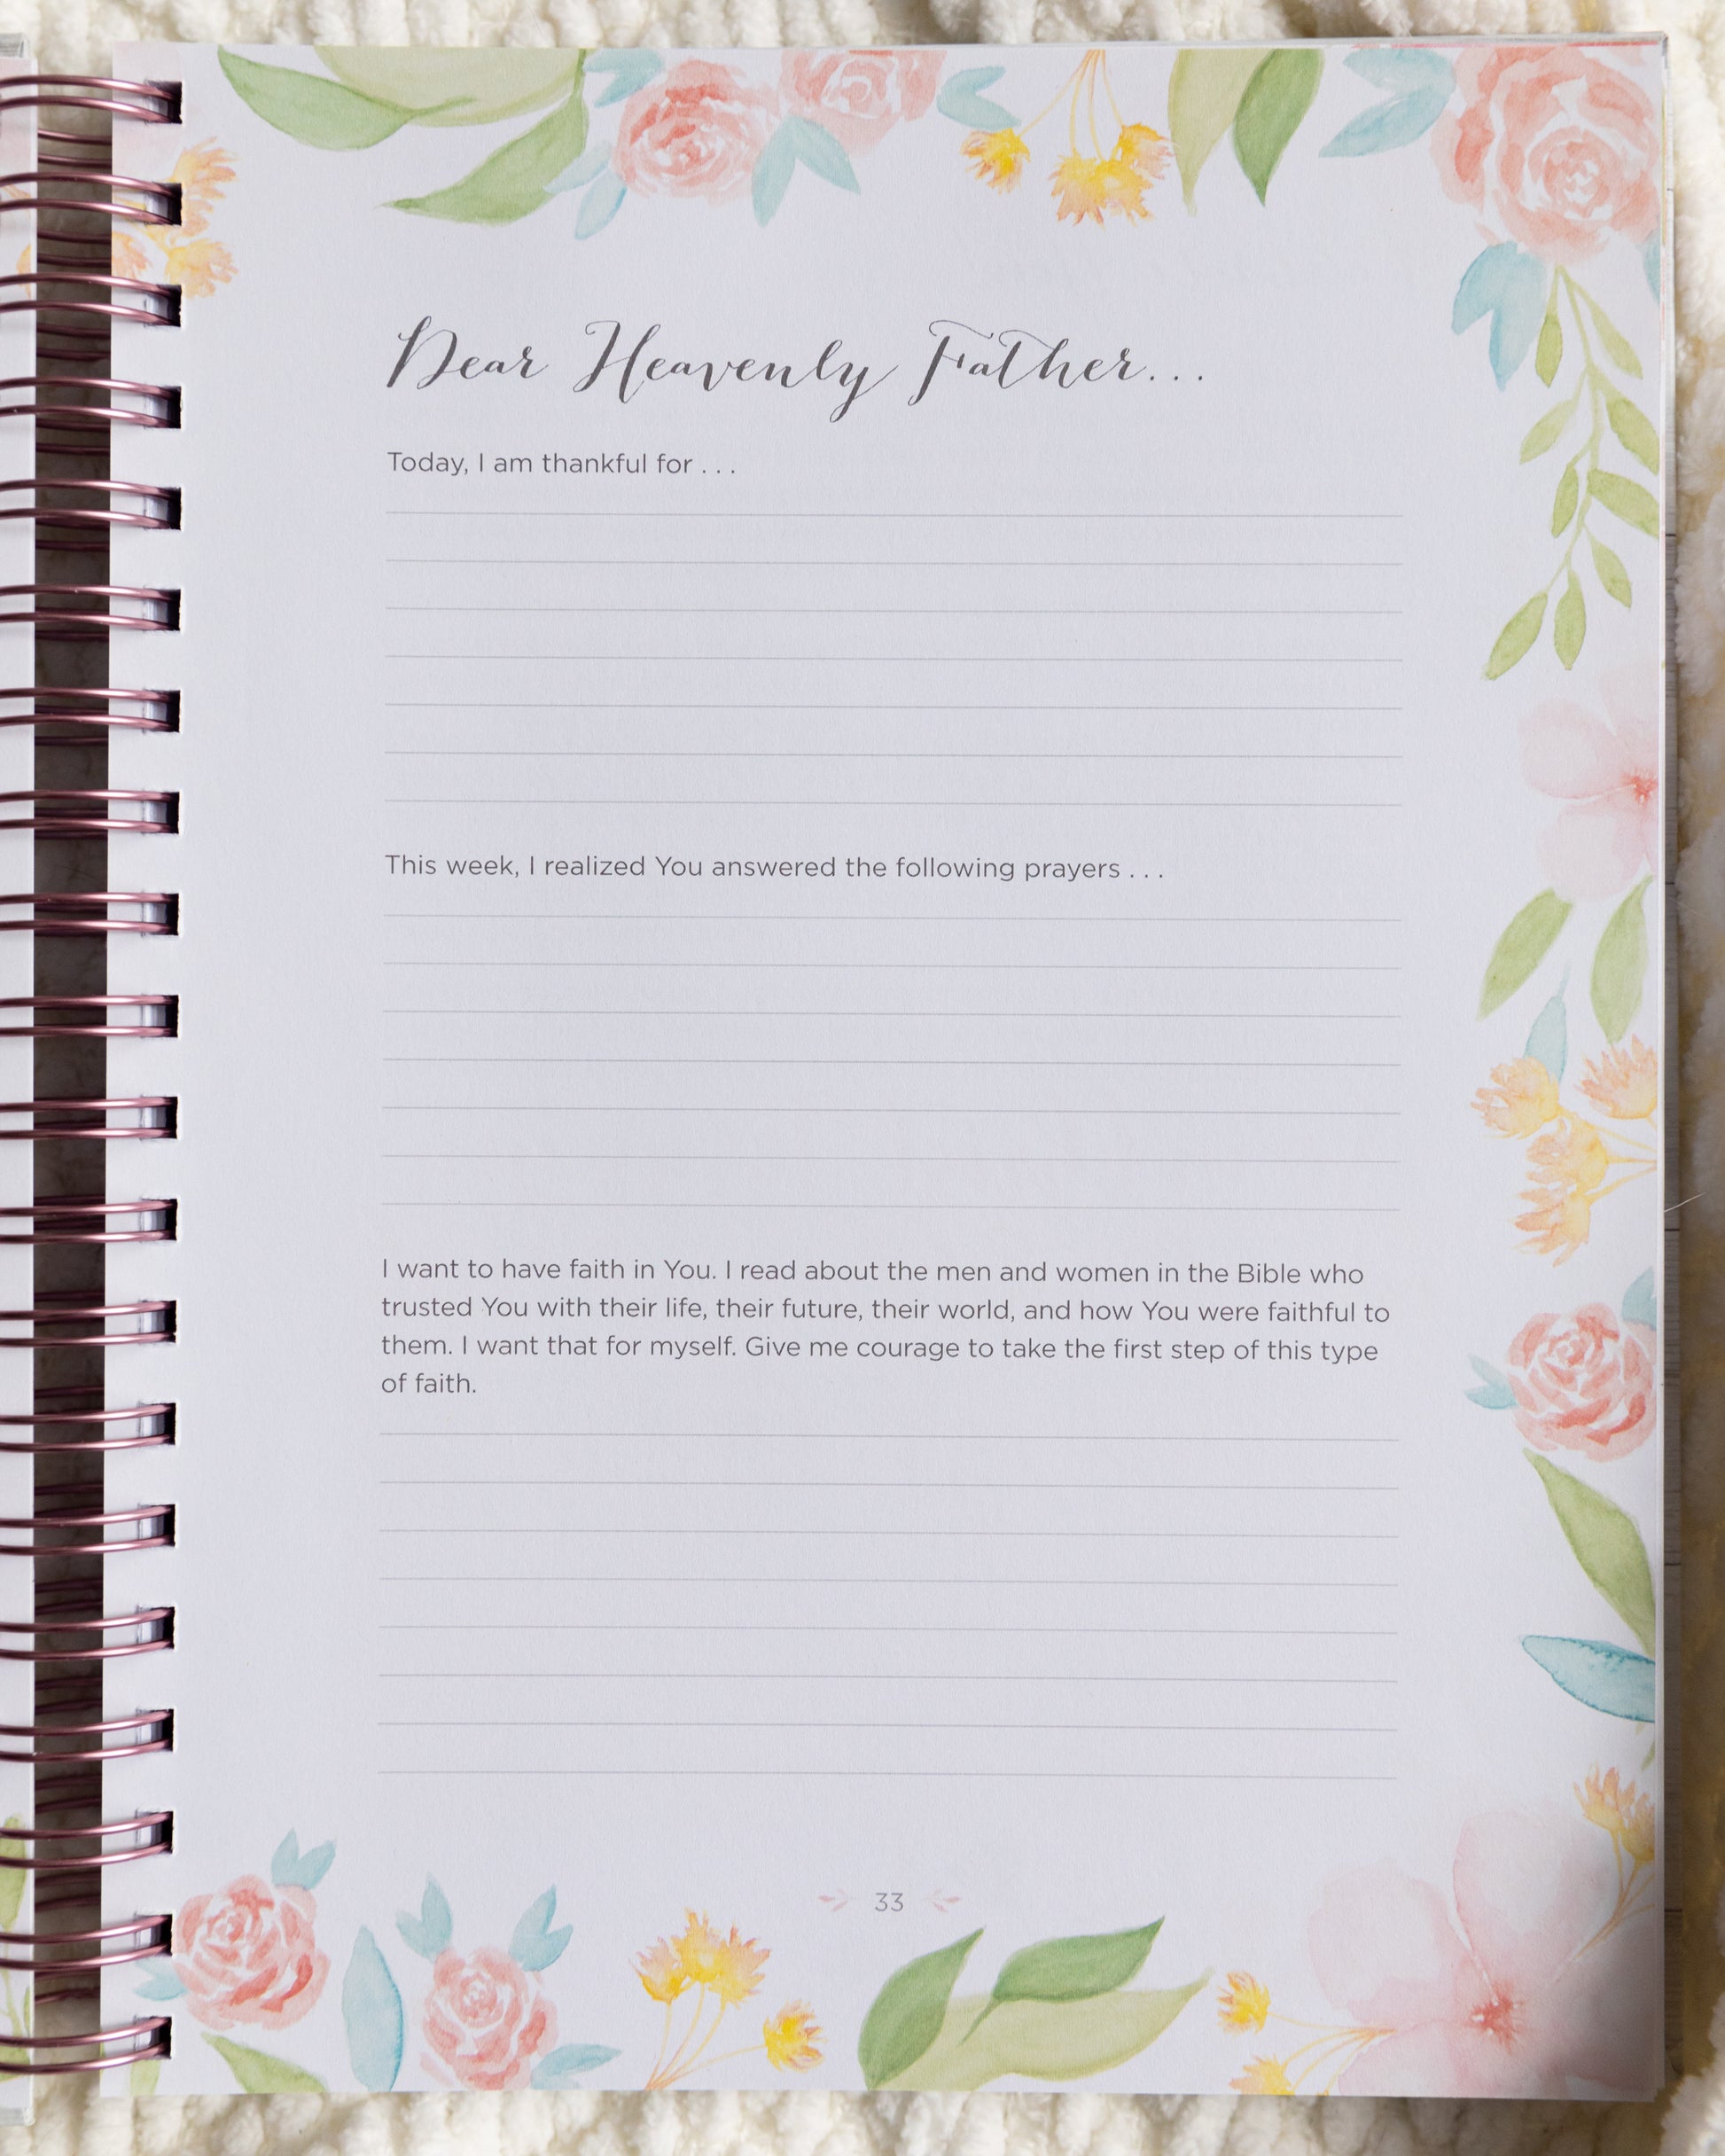 Dear Heavenly Father...
Today, I am thankful for . . .
This week, I realized You answered the following prayers . . .
I want to have faith in You. I read about the men and women in the Bible who
trusted You with their life, their future, their world, and how You were faithful to
them. I want that for myself. Give me courage to take the first step of this type
of faith.
33